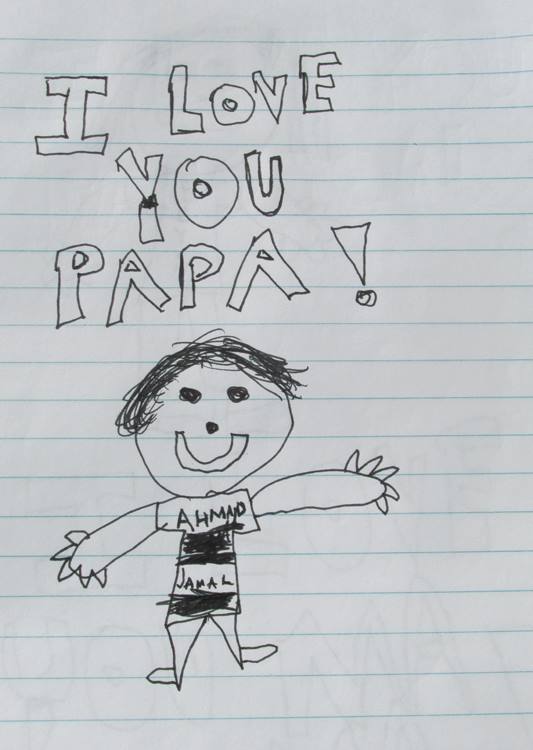 I LOVE
YOU
PAPA!
AHMAD
JAMAL